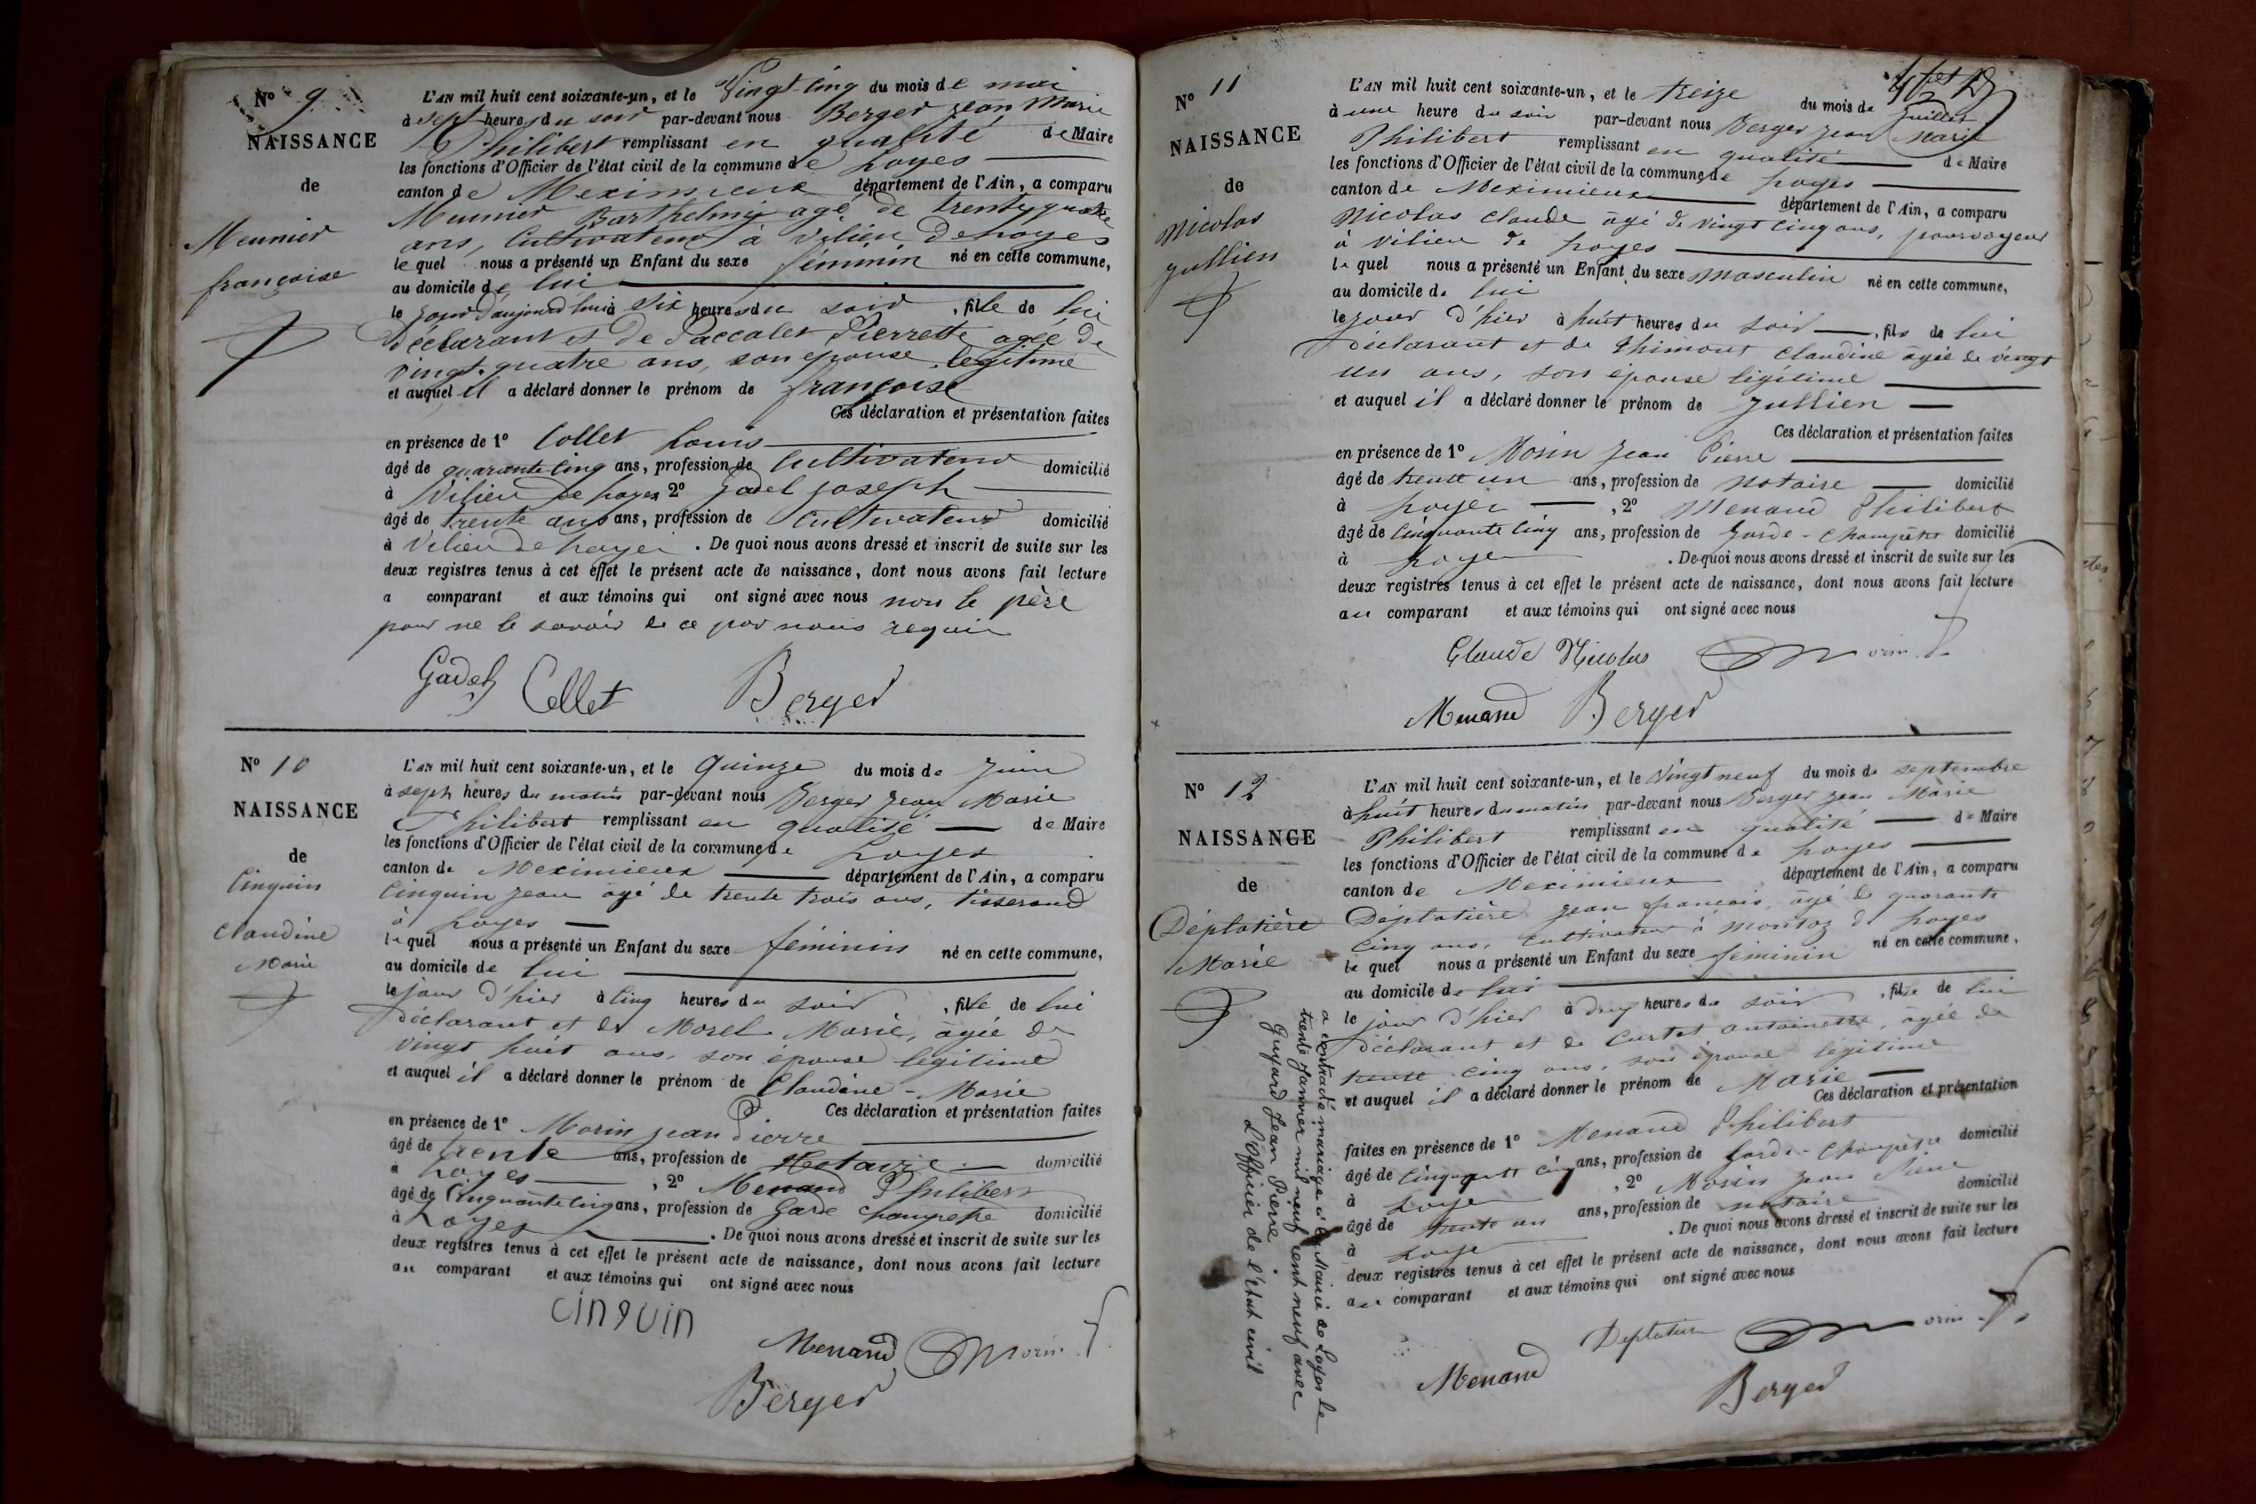 N° 9
NAISSANCE
de
Meunier
françoise
L'AN mil huit cent soixante-un, et le Vingt cinq du mois de mai
à sept heures du soir par-devant nous Berger Jean Marie
Philibert remplissant en qualité de Maire
les fonctions d'Officier de l'état civil de la commune de Loyes
canton de Meximieux département de l'Ain, a comparu
Meunier Barthelmy agé de trente quatre
ans, Cultivateur à Vilieu De Loyes
le quel nous a présenté un Enfant du sexe féminin né en cette commune,
au domicile de lui
le jour d'aujourd'hui à six heures du soir, fille de lui
Déclarant et de Paccalet Pierrette agée de
vingt-quatre ans, son épouse légitime
et auquel il a déclaré donner le prénom de françoise
Ces déclaration et présentation faites
en présence de 1° Collet Louis
âgé de quarante cinq ans, profession de Cultivateur domicilié
à Vilieu de Loyes 2° Gadel joseph
âgé de trente ans ans, profession de Cultivateur domicilié
à Vilieu de Loyes. De quoi nous avons dressé et inscrit de suite sur les
deux registres tenus à cet effet le présent acte de naissance, dont nous avons fait lecture
a comparant et aux témoins qui ont signé avec nous non le père
pour ne le savoir de ce par nous requis
Gadel Collet Berger
N° 10
NAISSANCE
de
Cinquin
Claudine
Marie
L'AN mil huit cent soixante-un, et le Quinze du mois de Juin
à sept heures du matin par-devant nous Berger Jean Marie
Philibert remplissant en qualité de Maire
les fonctions d'Officier de l'état civil de la commune de Loyes
canton de Meximieux département de l'Ain, a comparu
Cinquin Jean âgé de trente trois ans, tisserand
à Loyes
le quel nous a présenté un Enfant du sexe féminin né en cette commune,
au domicile de lui
le jour d'hier à cinq heures du soir, fille de lui
Déclarant et de Morel Marie, âgée de
vingt huit ans, son épouse légitime
et auquel il a déclaré donner le prénom de Claudine-Marie
Ces déclaration et présentation faites
en présence de 1° Morin Jean Pierre
âgé de trente ans, profession de Notaire domicilié
à Loyes, 2° Menand Philibert
âgé de Cinquante cinq ans, profession de Garde champetre domicilié
à Loyes. De quoi nous avons dressé et inscrit de suite sur les
deux registres tenus à cet effet le présent acte de naissance, dont nous avons fait lecture
au comparant et aux témoins qui ont signé avec nous
cinquin
Menand Morin
Berger
N° 11
NAISSANCE
de
Nicolas
Jullien
L'AN mil huit cent soixante-un, et le treize du mois de Juillet
à une heure du soir par-devant nous Berger Jean Marie
Philibert remplissant en qualité de Maire
les fonctions d'Officier de l'état civil de la commune de Loyes
canton de Meximieux département de l'Ain, a comparu
Nicolas Claude âgé de vingt cinq ans, pourvoyeur
à Vilieu de Loyes
le quel nous a présenté un Enfant du sexe masculin né en cette commune,
au domicile de lui
le jour d'hier à huit heures du soir, fils de lui
Déclarant et de Thimont Claudine âgée de vingt
un ans, son épouse légitime
et auquel il a déclaré donner le prénom de Jullien
Ces déclaration et présentation faites
en présence de 1° Morin Jean Pierre
âgé de trente un ans, profession de notaire domicilié
à Loyes, 2° Menand Philibert
âgé de cinquante cinq ans, profession de Garde-champêtre domicilié
à Loyes. De quoi nous avons dressé et inscrit de suite sur les
deux registres tenus à cet effet le présent acte de naissance, dont nous avons fait lecture
au comparant et aux témoins qui ont signé avec nous
Claude Nicolas Morin
Menand Berger
N° 12
NAISSANCE
de
Déplatière
Marie
L'AN mil huit cent soixante-un, et le Vingt neuf du mois de septembre
à huit heures du matin par-devant nous Berger Jean Marie
Philibert remplissant en qualité de Maire
les fonctions d'Officier de l'état civil de la commune de Loyes
canton de Meximieux département de l'Ain, a comparu
Déplatière Jean françois, âgé de quarante
cinq ans, cultivateur à Montoz de Loyes
le quel nous a présenté un Enfant du sexe féminin né en cette commune,
au domicile de lui
le jour d'hier à deux heures du soir, fille de lui
déclarant et de Curtet antoinette, agée de
trente cinq ans, son épouse légitime
et auquel il a déclaré donner le prénom de Marie
Ces déclaration et présentation
faites en présence de 1° Menand Philibert
âgé de cinquante cinq ans, profession de Garde-champêtre domicilié
à Loyes, 2° Morin Jean Pierre
âgé de trente un ans, profession de notaire domicilié
à Loyes. De quoi nous avons dressé et inscrit de suite sur les
deux registres tenus à cet effet le présent acte de naissance, dont nous avons fait lecture
au comparant et aux témoins qui ont signé avec nous
Deplatiere Morin
Menand Berger
a contracté mariage à la Mairie de Loyes le
trente Janvier mil neuf cent neuf avec
Guyard Jean Pierre.
L'officier de l'état civil